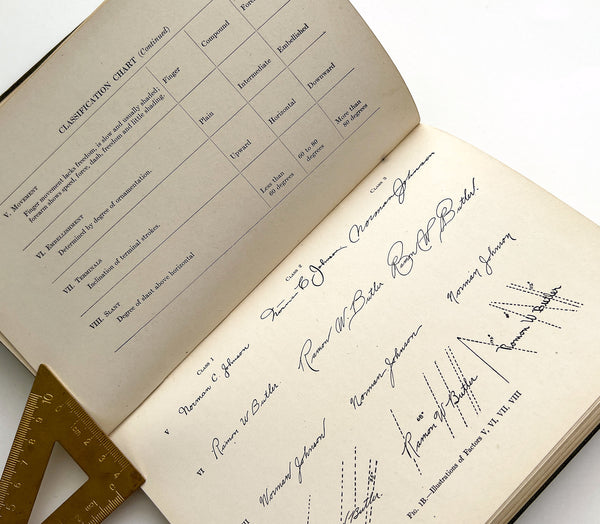 CLASSIFICATION CHART (Continued)
V. MOVEMENT
Finger Compound
Finger movement lacks freedom, is slow and usually shaded;
forearm shows speed, force, dash, freedom and little shading.
VI. EMBELLISHMENT
Plain Intermediate Embellished
Determined by degree of ornamentation.
VII TERMINALS
Upward Horizontal Downward
Inclination of terminal strokes.
VIII. SLANT
Less than 60 degrees
60 to 80 degrees
More than 80 degrees
Degree of slant above horizontal
CLASS 1 CLASS 2 CLASS 3
V Norman C Johnson Norman C Johnson Norman Johnson
VI Ramon W Butler. Ramon W. Butler Ramon W. Butler.
Norman Johnson Norman Johnson Norman Johnson
Butler. Ramon W Butler Ramon W Butler
FIG. 1B.—Illustrations of Factors V, VI, VII, VIII
10
9
8
7
6
5